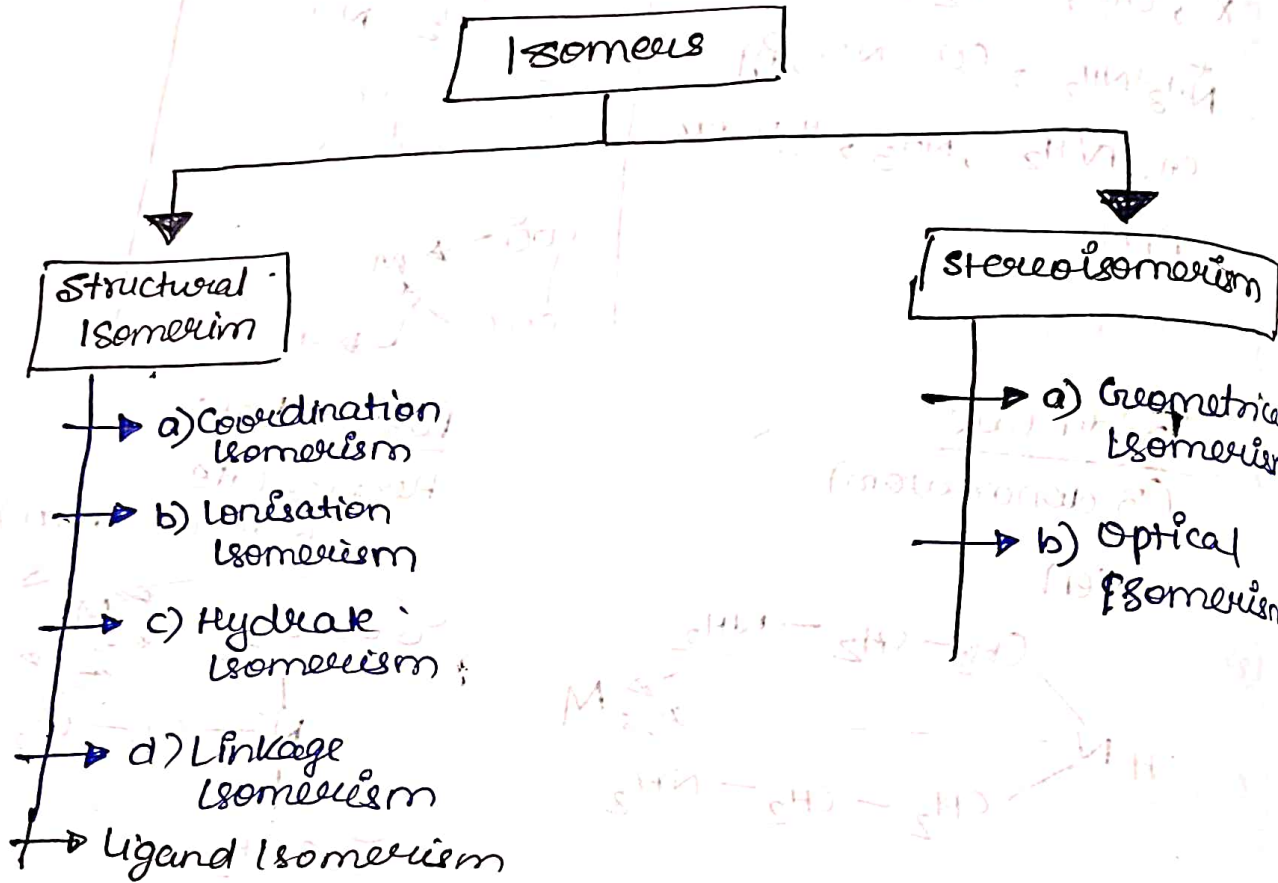 Isomers
Structural
Isomerim
a) Coordination
Isomerism
b) Ionisation
Isomerism
c) Hydrate
Isomerism
d) Linkage
Isomerism
Ligand Isomerism
Stereoisomerism
a) Geometrica
Isomerism
b) Optical
Isomerism